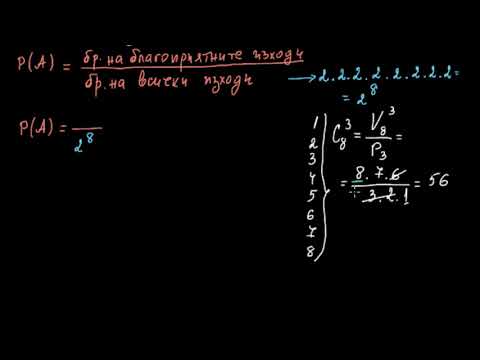 P(A) = бр. на благоприятните изходи / бр. на всички изходи
→ 2.2.2.2.2.2.2.2 =
= 2^8
P(A) = — / 2^8
1
2
3
4
5
6
7
8
C_8^3 = V_8^3 / P_3 =
= 8.7.6 / 3.2.1 = 56